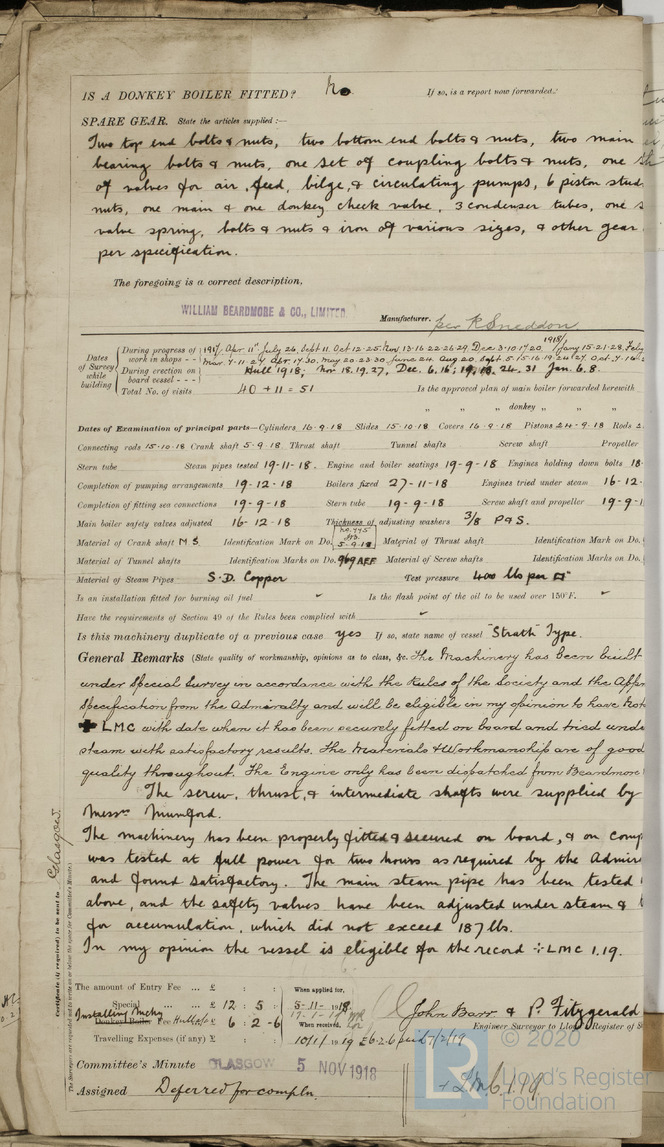 IS A DONKEY BOILER FITTED? No If so, is a report now forwarded?
SPARE GEAR. State the articles supplied:—
Two top end bolts & nuts, two bottom end bolts & nuts, two main
bearing bolts & nuts, one set of coupling bolts & nuts, one
of valves for air, feed, bilge, & circulating pumps, 6 piston stud
nuts, one main & one donkey check valve, 3 condenser tubes, one s
valve spring, bolts & nuts & iron of various sizes, & other gear
per specification.
The foregoing is a correct description,
WILLIAM BEARDMORE & CO., LIMITED. Manufacturer. per R Sneddon
Dates of Survey while building
During progress of work in shops - - 1917. Apr. 11 July 24 Sept 11 Oct 12-25 Nov 13-16-22-26-29 Dec 3-10-17-20 1918/ Jany 15-21-28
Mar 4-11-27 Apr. 17-30 May 20-23-30 June 24 Aug 20 Sept 5-15-16-19-24-27 Oct
During erection on board vessel - - - Hull 1918; Nov 18.19.27, Dec. 6,16; 24. 31 Jan 6.8.
Total No. of visits 40 + 11 = 51 Is the approved plan of main boiler forwarded herewith
" " donkey " "
Dates of Examination of principal parts—Cylinders 16-9-18 Slides 15-10-18 Covers 16-9-18 Pistons 24-9-18 Rods
Connecting rods 15-10-18 Crank shaft 5-9-18 Thrust shaft Tunnel shafts Screw shaft Propeller
Stern tube Steam pipes tested 19-11-18. Engine and boiler seatings 19-9-18 Engines holding down bolts 18
Completion of pumping arrangements 19-12-18 Boilers fixed 27-11-18 Engines tried under steam 16-12-
Completion of fitting sea connections 19-9-18 Stern tube 19-9-18 Screw shaft and propeller 19-9-1
Main boiler safety valves adjusted 16-12-18 Thickness of adjusting washers 3/8 P & S.
Material of Crank shaft M S Identification Mark on Do. No. 445 5-9-18 Material of Thrust shaft Identification Mark on Do.
Material of Tunnel shafts Identification Marks on Do. 969 AFF Material of Screw shafts Identification Marks on Do.
Material of Steam Pipes S. D. Copper Test pressure 400 lbs per □"
Is an installation fitted for burning oil fuel ✓ Is the flash point of the oil to be used over 150°F. ✓
Have the requirements of Section 49 of the Rules been complied with ✓
Is this machinery duplicate of a previous case yes If so, state name of vessel "Strath" Type.
General Remarks (State quality of workmanship, opinions as to class, &c. The Machinery has been built
under Special Survey in accordance with the Rules of the Society and the
Specification from the Admiralty and will be eligible in my opinion to have
✚ LMC with date when it has been securely fitted on board and tried unde
steam with satisfactory results. The Materials & Workmanship are of good
quality throughout. The Engine only has been dispatched from Beardmore
The screw, thrust, & intermediate shafts were supplied by
Messrs Mumford.
The machinery has been properly fitted & secured on board, & on comp
was tested at full power for two hours as required by the Admir
and found satisfactory. The main steam pipe has been tested
above, and the safety valves have been adjusted under steam &
for accumulation, which did not exceed 187 lbs.
In my opinion the vessel is eligible for the record ✢ LMC 1.19.
The amount of Entry Fee ... £ : : When applied for,
Special ... ... £ 12 : 5 : 8-11-1918.
Installing Mchy Donkey Boiler Fee £ 6 : 2 - 6 17-1-19 When received,
Travelling Expenses (if any) £ : : 10/1/1919 £6.2.6 7/2/19
John Barr & P. Fitzgerald
Engineer Surveyor to Lloyd's Register of S
Committee's Minute GLASGOW 5 NOV 1918
Assigned Deferred for compln. + LMC 1.19
Certificate (if required) to be sent to Glasgow.
(The Surveyors are requested not to write on or below the space for Committee's Minute.)
© 2020
Lloyd's Register
Foundation